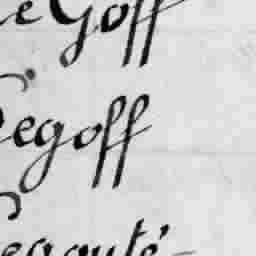 Le Goff
Legoff
Legouté